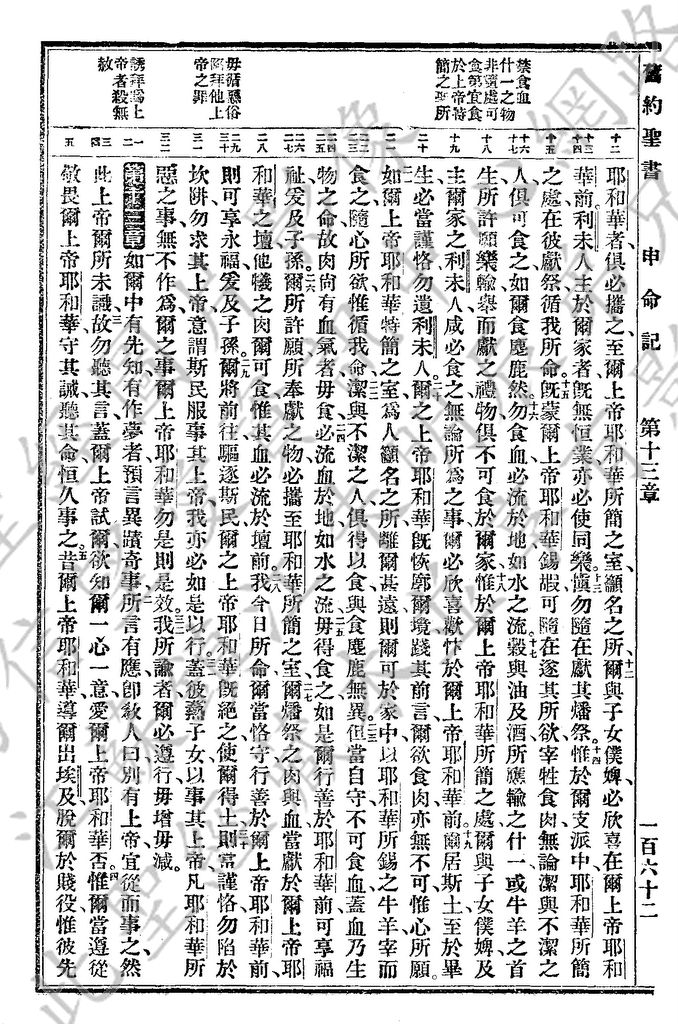 舊約聖書 申命記 第十三章 一百六十二
禁食血
什一之物
非隨處可
食第宜食
於上帝特
簡之所
毋循惡俗
陷拜他上
帝之罪
誘拜為上
帝者殺無
赦
耶和華者俱必攜之至爾上帝耶和華所簡之室籲名之所爾與子女僕婢必欣喜在爾上帝耶和
華前利未人主於爾家者旣無恒業亦必使同樂愼勿隨在獻其燔祭惟於爾支派中耶和華所簡
之處在彼獻祭循我所命旣蒙爾上帝耶和華錫嘏可隨在遂其所欲宰牲食肉無論潔與不潔之
人俱可食之如爾食麈鹿然勿食血必流於地如水之流穀與油及酒所應輸之什一或牛羊之首
生所許願樂輸舉而獻之禮物俱不可食於爾家惟於爾上帝耶和華所簡之處爾與子女僕婢及
主爾家之利未人咸必食之無論所為之事爾必欣喜歡忭於爾上帝耶和華前爾居斯土至於畢
生必當謹恪勿遺利未人爾之上帝耶和華旣恢廓爾境踐其前言爾欲食肉亦無不可惟心所願
如爾上帝耶和華特簡之室為人籲名之所離爾甚遠則爾可於家中以耶和華所錫之牛羊宰而
食之隨心所欲惟循我命潔與不潔之人俱得以食與食麈鹿無異但當自守不可食血蓋血乃生
物之命故肉尚有血氣者毋食必流血於地如水之流毋得食之如是爾行善於耶和華前可享福
祉爰及子孫爾所許願所奉獻之物必攜至耶和華所簡之室爾燔祭之肉與血當獻於爾上帝耶
和華之壇他犧之肉爾可食惟其血必流於壇前我今日所命爾當恪守行善於爾上帝耶和華前
則可享永福爰及子孫爾將前往驅逐斯民爾之上帝耶和華旣絕之使爾得土則當謹恪勿陷於
坎阱勿求其上帝意謂斯民服事其上帝我亦必如是以行蓋彼燕子女以事其上帝凡耶和華所
惡之事無不作為爾之事爾上帝耶和華勿是則是效我所諭者爾必遵行毋增毋減
第十三章 如爾中有先知有作夢者預言異蹟奇事所言有應卽敎人曰別有上帝宜從而事之然
此上帝爾所未識故勿聽其言蓋爾上帝試爾欲知爾一心一意愛爾上帝耶和華否惟爾當遵從
敬畏爾上帝耶和華守其誡聽其命恒久事之昔爾上帝耶和華導爾出埃及脫爾於賤役惟彼先